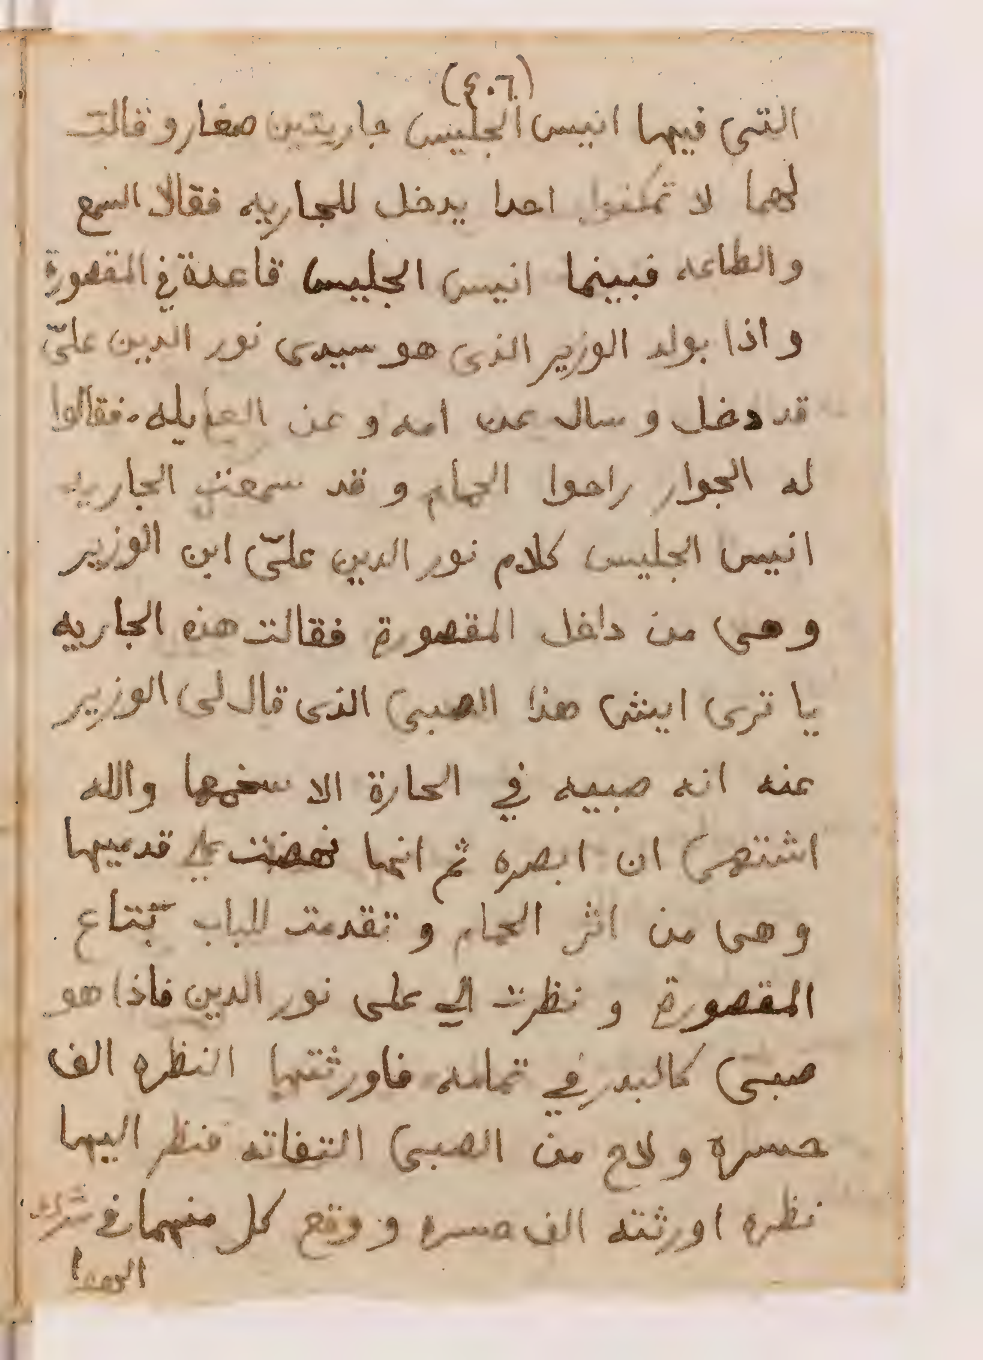 (٤٠٦)
التى فيها انيس الجليس جاريتين صغار وقالت
لهما لا تمكنوا احدا يدخل للجاريه فقالا السمع
والطاعه فبينما انيس الجليس قاعدة في المقصورة
واذا بولد الوزير الذى هو سيدى نور الدين علىّ
قد دخل وسال عن امه وعن العايله فقالوا
له الجوار راحوا الحمام وقد سمعت الجاريه
انيس الجليس كلام نور الدين علىّ ابن الوزير
وهى من داخل المقصورة فقالت هذه الجاريه
يا ترى ايش هذا الصبى الذى قال لى الوزير
عنه انه صبيه في الحارة الا
والله
اشتهى ان ابصره ثم انها نهضت على قدميها
وهى من اثر الحمام وتقدمت للباب بتاع
المقصورة ونظرت الي على نور الدين فاذا هو
صبى كالبدر في تمامه فاورثتها النظره الف
حسره ولاح من الصبى التفاته فنظر اليها
نظره اورثته الف حسره ووقع كل منهما في شرك